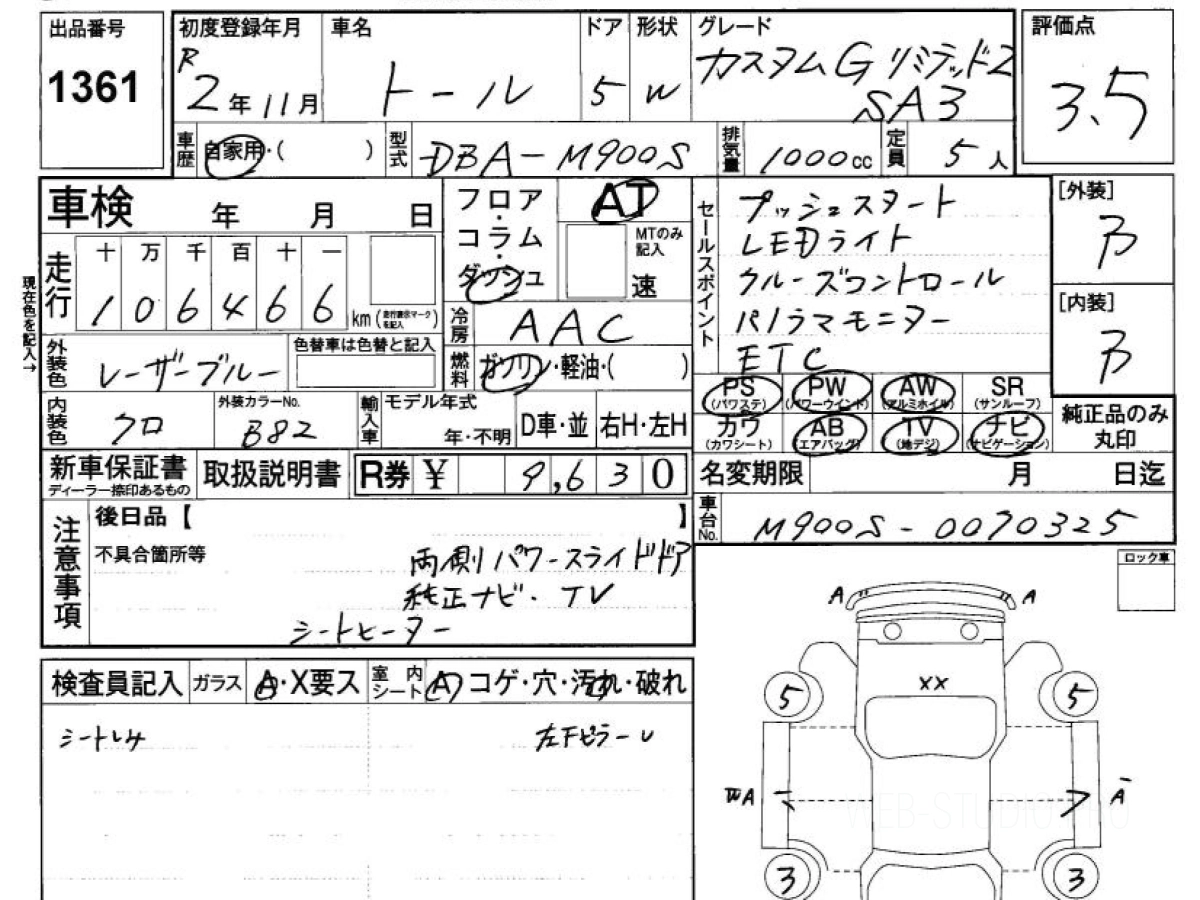 出品番号
1361
初度登録年月
R 2年11月
車名
トール
ドア
5
形状
W
グレード
カスタムG リミテッド2
SA3
評価点
3.5
車歴
自家用・( )
型式
DBA-M900S
排気量
1000cc
定員
5人
車検 年 月 日
フロア・コラム・ダッシュ
AT
MTのみ記入
速
走行
十 万 千 百 十 一
1 0 6 4 6 6 km
現在色を記入→
冷房
AAC
外装色
レーザーブルー
色替車は色替と記入
燃料
ガソリン・軽油・( )
内装色
クロ
外装カラーNo.
B82
輸入車
モデル年式
年・不明
D車・並
右H・左H
新車保証書
ディーラー捺印あるもの
取扱説明書
R券 ¥ 9,630
セールスポイント
プッシュスタート
LEDライト
クルーズコントロール
パノラマモニター
ETC
[外装]
B
[内装]
B
PS (パワステ)
PW (パワーウインド)
AW (アルミホイル)
SR (サンルーフ)
カワ (カワシート)
AB (エアバッグ)
TV (地デジ)
ナビ (ナビゲーション)
純正品のみ
丸印
名変期限 月 日迄
車台No.
M900S-0070325
注意事項
後日品【 】
不具合箇所等
両側パワースライドドア
純正ナビ・TV
シートヒーター
ロック車
検査員記入
ガラス
A・X要ス
室内シート
A コゲ・穴・汚れ・破れ
シートしみ
左FピラーU
A A
XX
5 5
A A
3 3
WEB-STUDIO.PRO